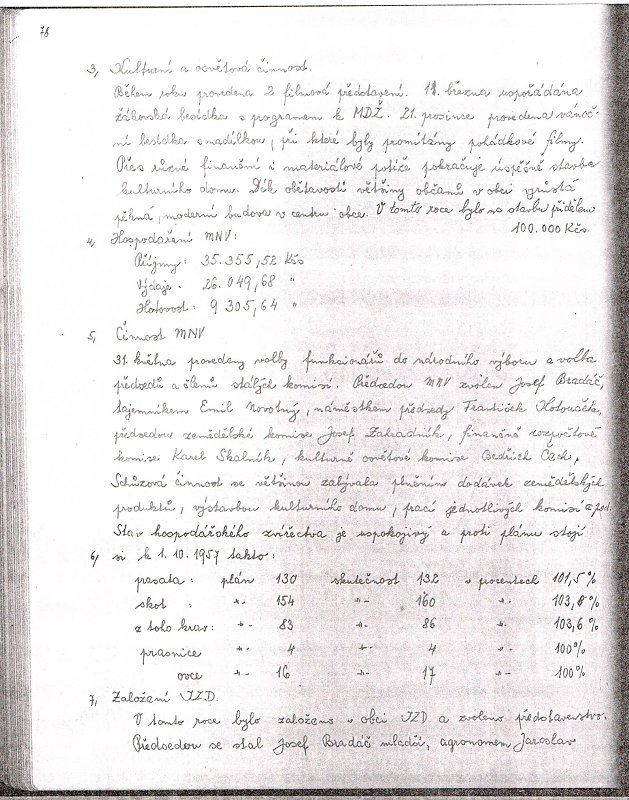 78
3, Kulturní a osvětová činnost.
Během roku provedena 2 filmová představení. 11. března uspořádána
žákovská besídka s programem k MDŽ. 21. prosince provedena vánoč-
ní besídka s nadílkou, při které byly promítány pohádkové filmy.
Přes různé finanční i materiálové potíže pokračuje úspěšně stavba
kulturního domu. Dík obětavosti většiny občanů v obci vyrůstá
pěkná, moderní budova v centru obce. V tomto roce bylo na stavbu přiděleno
100.000 Kčs.
4, Hospodaření MNV:
Příjmy: 35.355,52 Kčs
Výdaje: 26.049,68 "
Hotovost: 9 305,64 "
5, Činnost MNV
31. května provedeny volby funkcionářů do národního výboru a volba
předsedů a členů stálých komisí. Předsedou MNV zvolen Josef Bradáč,
tajemníkem Emil Novotný, náměstkem předsedy František Kotouček,
předsedou zemědělské komise Josef Zahradník, finančně rozpočtové
komise Karel Skalník, kulturně osvětové komise Bedřich Čech.
Schůzová činnost se většinou zabývala plněním dodávek zemědělských
produktů, výstavbou kulturního domu, prací jednotlivých komisí a pod.
Stav hospodářského zvířectva je uspokojivý a proti plánu stojí
6, si k 1.10.1957 takto:
prasata: plán 130 skutečnost 132 v procentech 101,5%
skot : -"- 154 -"- 160 -"- 103,6%
z toho krav: -"- 83 -"- 86 -"- 103,6%
prasnice -"- 4 -"- 4 -"- 100%
ovce -"- 16 -"- 17 -"- 100%
7, Založení JZD.
V tomto roce bylo založeno v obci JZD a zvoleno představenstvo.
Předsedou se stal Josef Bradáč mladší, agronomem Jaroslav